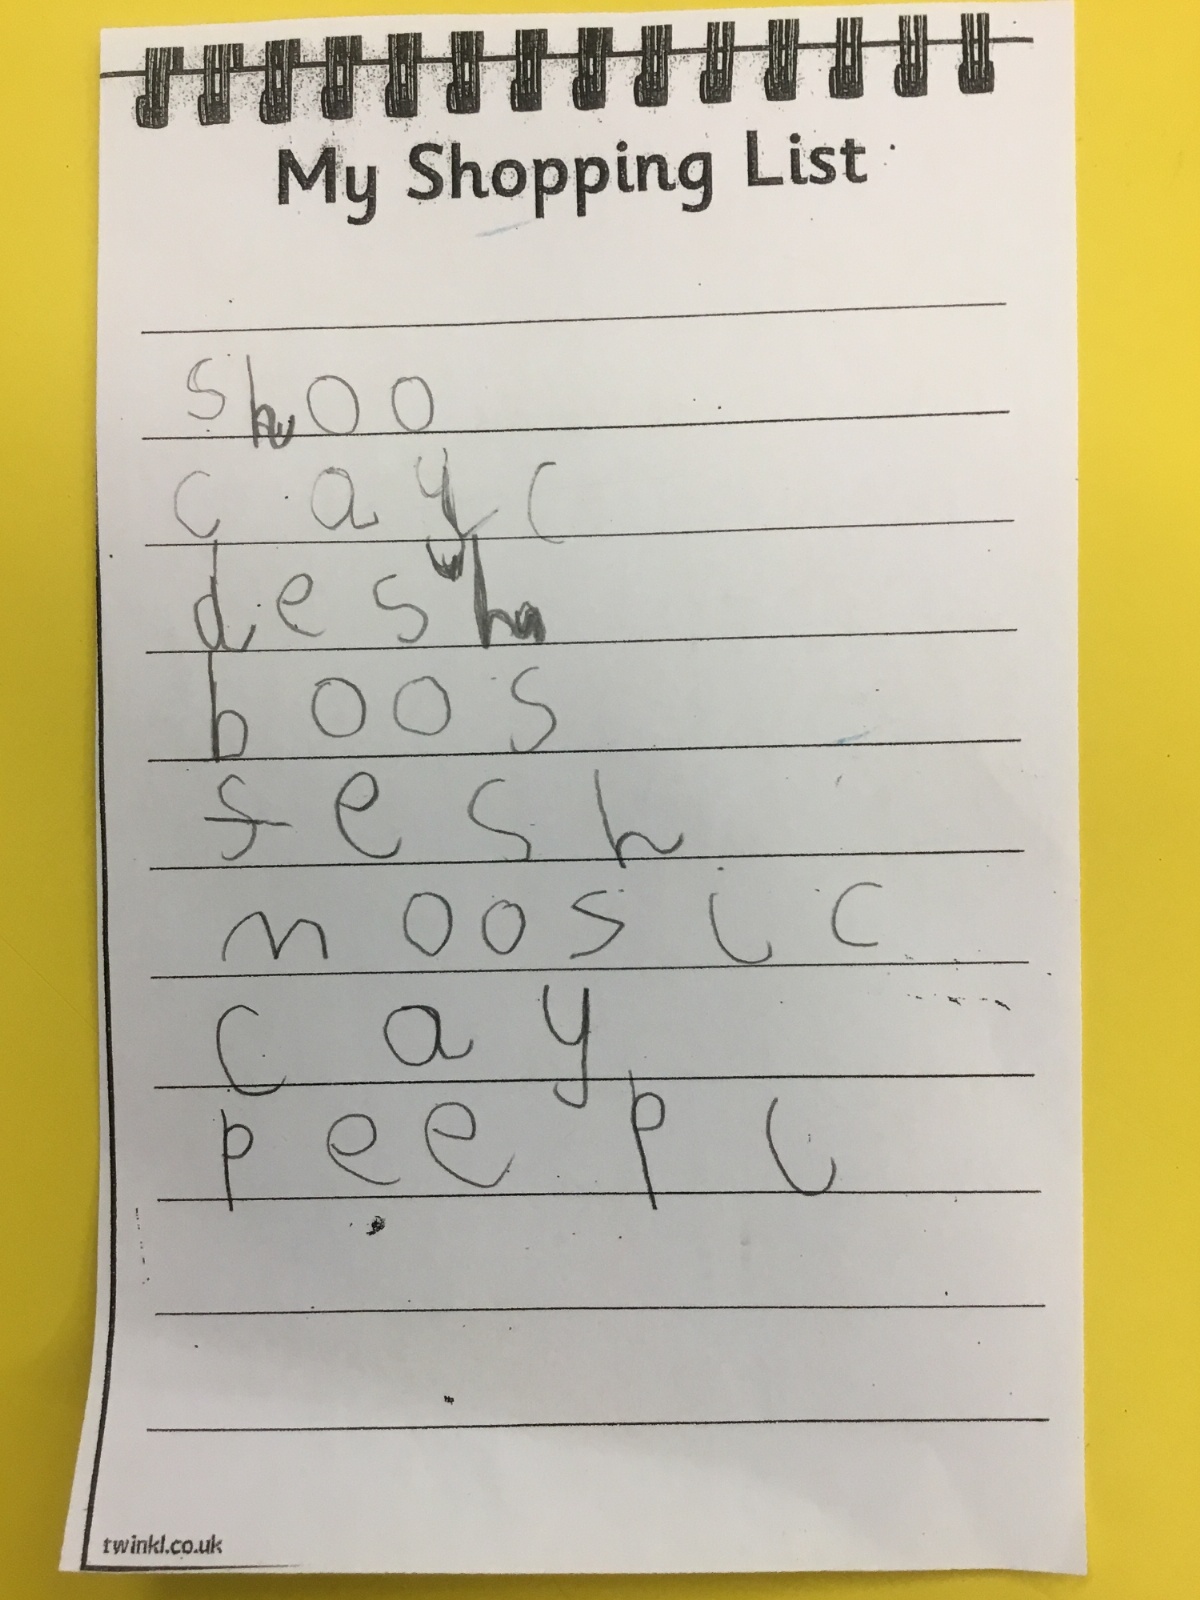 My Shopping List
shoo
cayc
desh
boos
fesh
moosic
cay
peepl
twinkl.co.uk